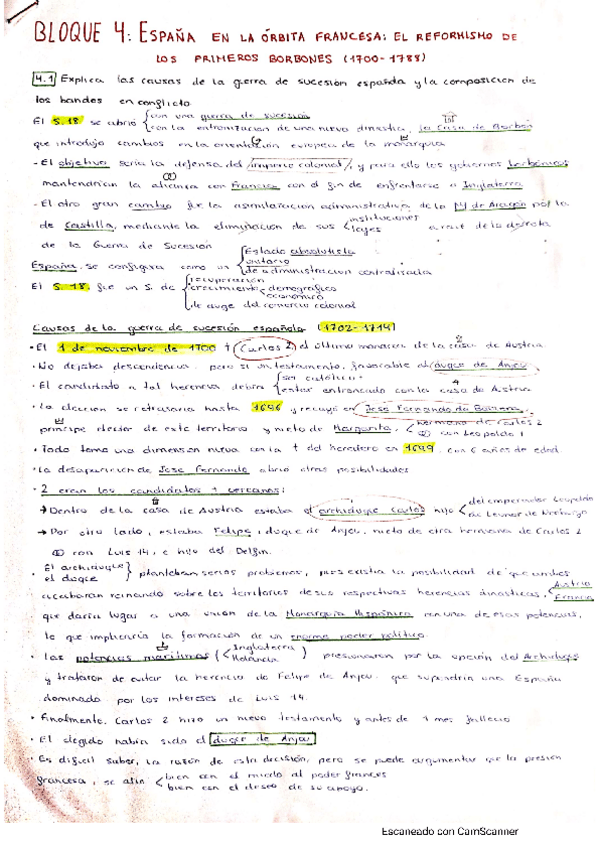 BLOQUE 4: ESPAÑA EN LA ÓRBITA FRANCESA: EL REFORMISMO DE
LOS PRIMEROS BORBONES (1700-1788)
4.1 Explica las causas de la guerra de sucesión española y la composición de
los bandos en conflicto
El S.18 se abrió con una guerra de sucesión
con la entronización de una nueva dinastía, la Casa de Borbón
que introdujo cambios en la orientación europea de la monarquía
- El objetivo sería la defensa del imperio colonial, y para ello los gobiernos borbónicos
mantendrían la alianza con Francia con el fin de enfrentarse a Inglaterra
- El otro gran cambio fue la asimilación administrativa de la M de Aragón por la
de Castilla, mediante la eliminación de sus instituciones
leyes a raíz de la derrota
de la Guerra de Sucesión
España se configura como un Estado absolutista
unitario
de administración centralizada
El S.18 fue un S. de recuperación
crecimiento demográfico
económico
de auge del comercio colonial
Causas de la guerra de sucesión española (1702-1714)
· El 1 de noviembre de 1700 † Carlos 2, el último monarca de la casa de Austria
· No dejaba descendencia, pero sí un testamento favorable al duque de Anjou
· El candidato a tal herencia debía ser católico
estar entroncado con la casa de Austria
· La elección se retrasaría hasta 1696 y recayó en José Fernando de Baviera,
príncipe elector de este territorio y nieto de Margarita, hermana de Carlos 2
con Leopoldo 1
· Todo toma una dimensión nueva con la † del heredero en 1699, con 6 años de edad
· La desaparición de José Fernando abrió otras posibilidades
· 2 eran los candidatos + cercanos:
→ Dentro de la casa de Austria estaba el archiduque Carlos hijo del emperador Leopoldo
de Leonor de
→ Por otro lado, estaba Felipe, duque de Anjou, nieto de otra hermana de Carlos 2
con Luis 14, e hijo del Delfín.
· El archiduque
el duque planteaban serios problemas, pues existía la posibilidad de que ambos
acabaran reinando sobre los territorios de sus respectivas herencias dinásticas, Austria
Francia
que daría lugar a una unión de la Monarquía Hispánica con una de esas potencias,
lo que implicaría la formación de un enorme poder político.
· Las potencias marítimas (Inglaterra
Holanda) presionaron por la opción del Archiduque
y trataron de evitar la herencia de Felipe de Anjou, que supondría una España
dominada por los intereses de Luis 14.
· Finalmente, Carlos 2 hizo un nuevo testamento y antes de 1 mes falleció
· El elegido había sido el duque de Anjou
· Es difícil saber la razón de esta decisión, pero se puede argumentar que la presión
francesa, se unía bien con el miedo al poder francés
bien con el deseo de su apoyo.
Escaneado con CamScanner